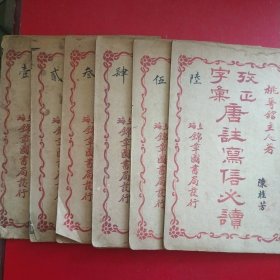 壹
上海錦章圖書局發行
貳
錦章圖書局發行
叁
上海錦章圖書局發行
肆
上海錦章圖書局發行
伍
上海錦章圖書局發行
陸
攷正字彙
唐註寫信必讀
上海錦章圖書局發行
陳桂芳